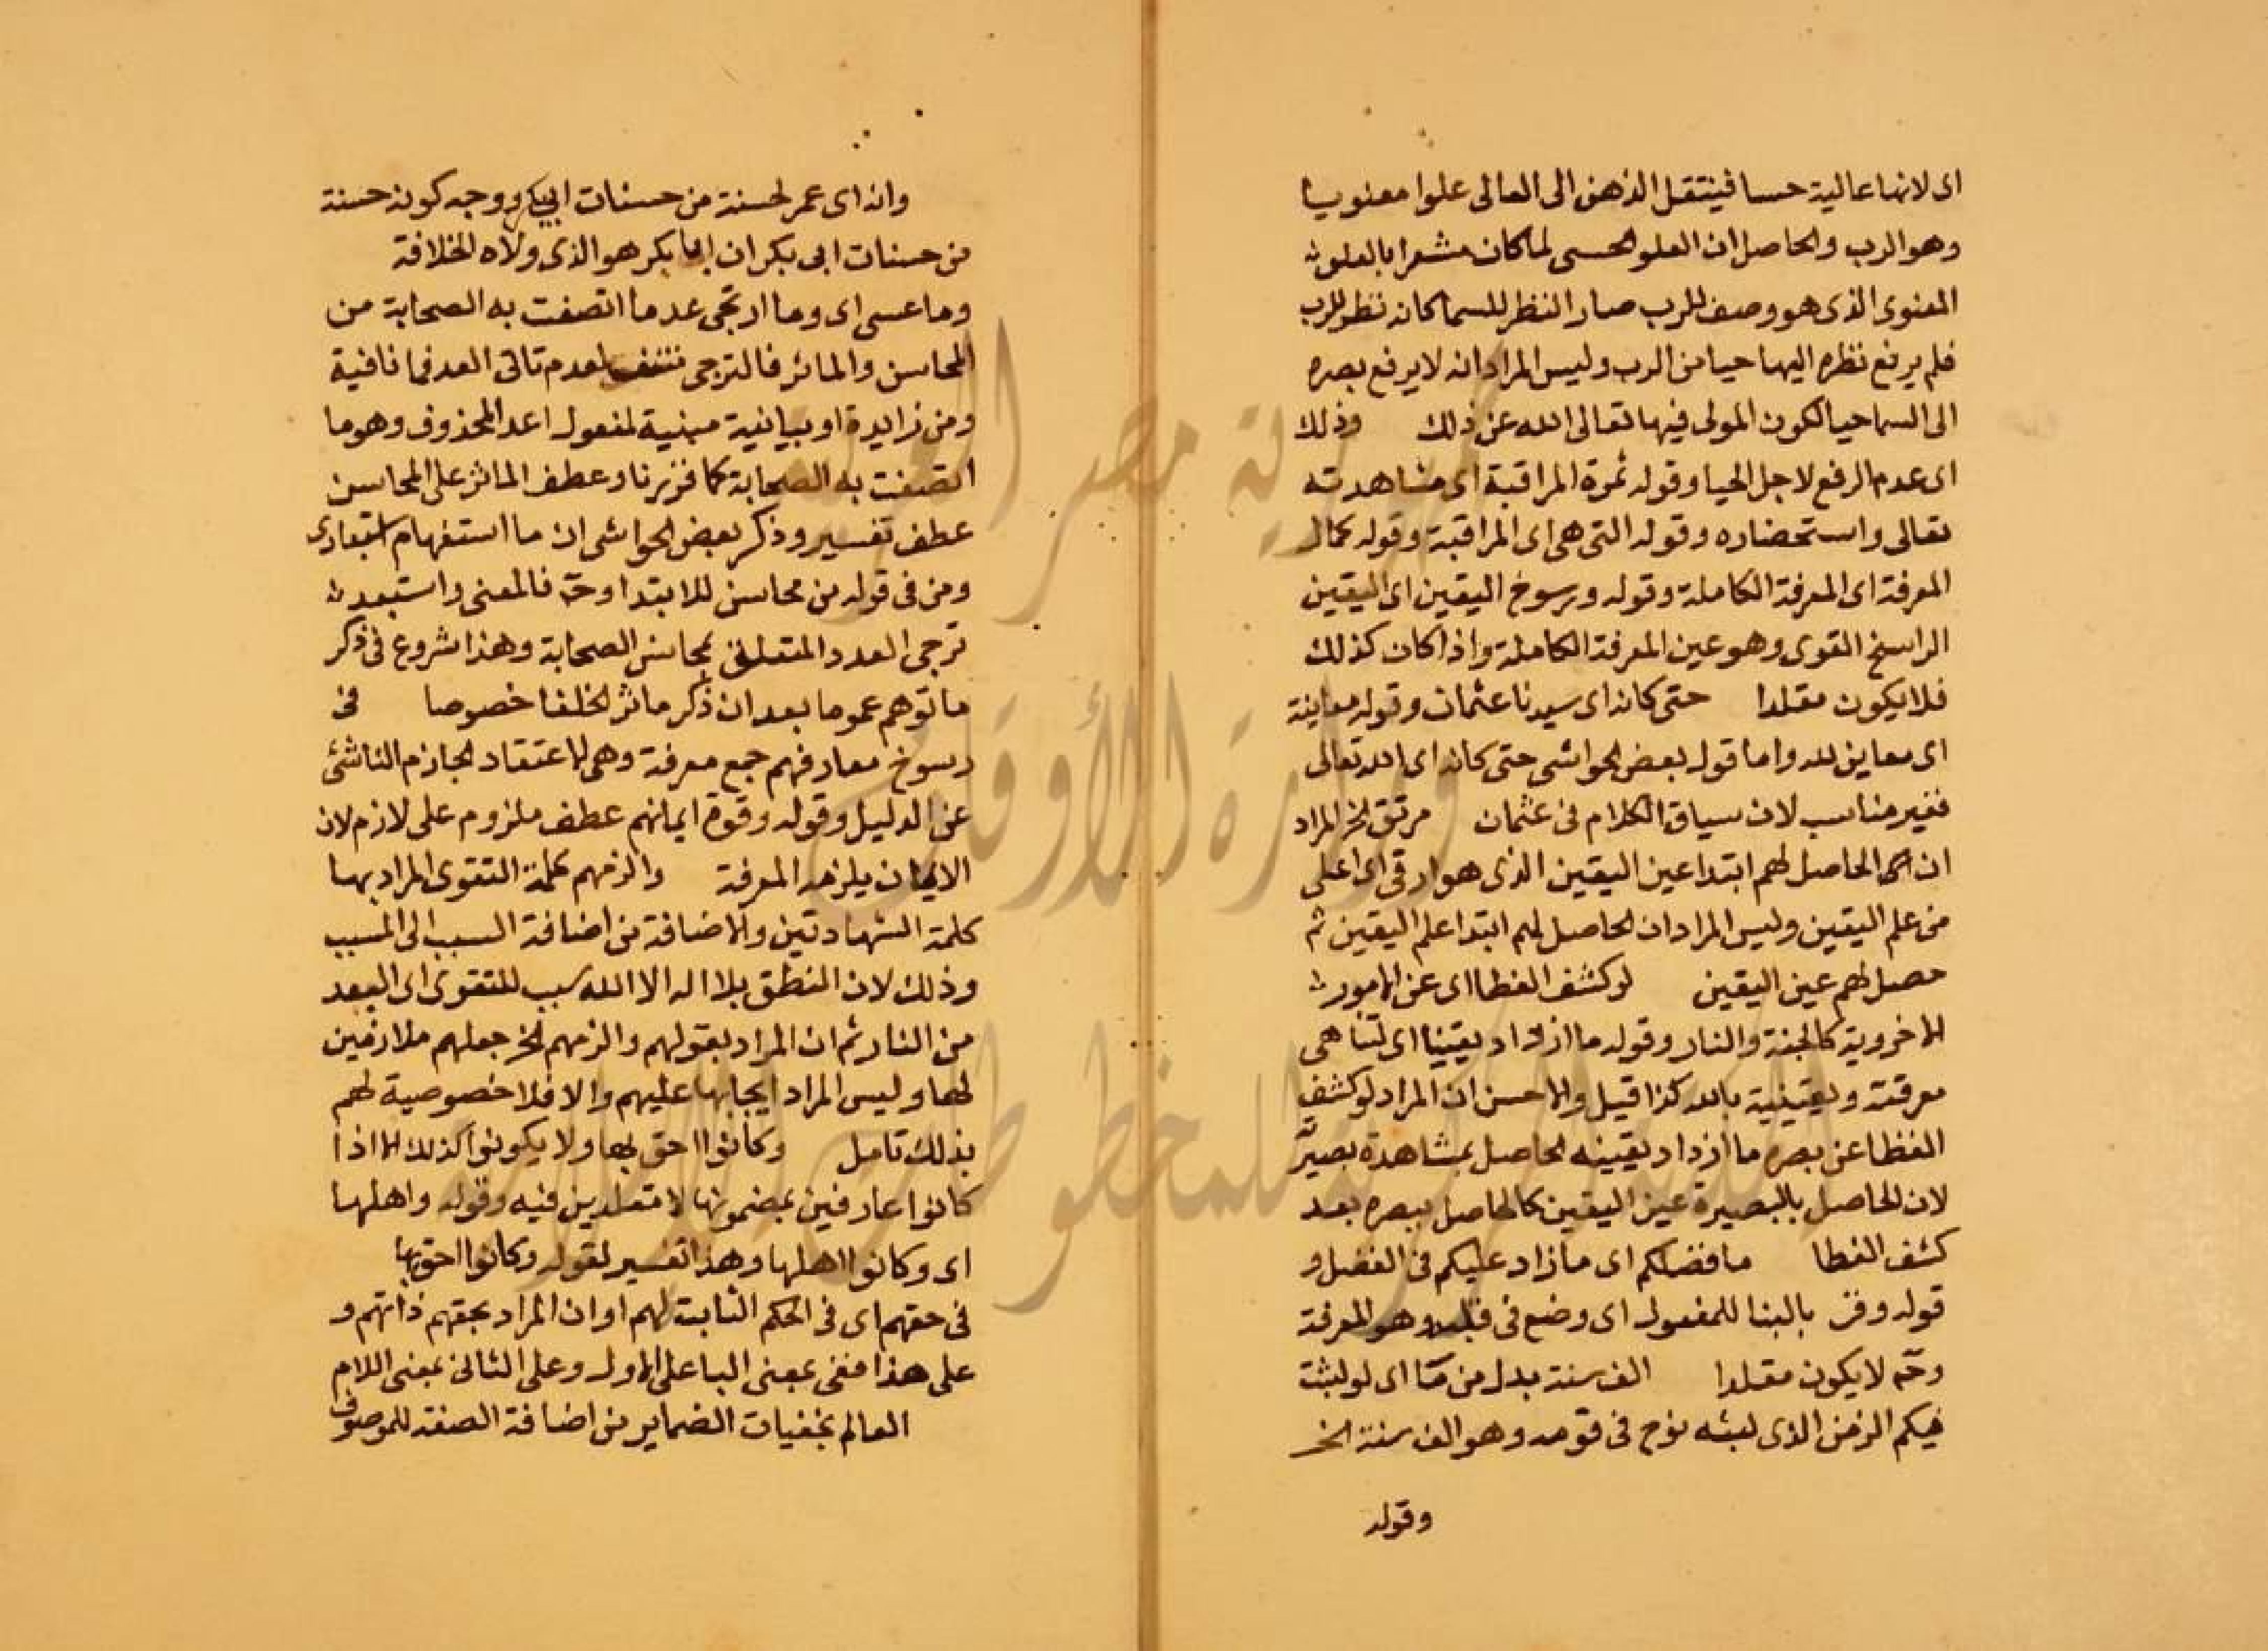 اى لانها عالية حسا فينتقل الذهن الى العالى علوا معنويا
وهو الرب والحاصل ان العلو الحسى لما كان مشعرا بالعلو
المعنوى الذى هو وصف للرب صار النظر للسما كانه نظر للرب
فلم يرفع نظره اليها حيا من الرب وليس المراد انه لا يرفع بصره
الى السما حيا لكون المولى فيها تعالى الله عن ذلك وذلك
اى عدم الرفع لاجل الحيا وقوله ثمرة المراقبة اى مشاهدته
تعالى واستحضاره وقوله التى هى اى المراقبة وقوله كمال
المعرفة اى المعرفة الكاملة وقوله ورسوخ اليقين اى اليقين
الراسخ القوى وهو عين المعرفة الكاملة واذا كان كذلك
فلا يكون مقلدا حتى كانه اى سيدنا عثمان وقوله معاينة
اى معاين لله واما قول بعض الحواشى حتى كانه اى الله تعالى
فغير مناسب لان سياق الكلام فى عثمان مرتق الخ المراد
ان الحاصل لهم ابتدا عين اليقين الذى هو ارقى اى اعلى
من علم اليقين وليس المراد ان الحاصل لهم ابتدا علم اليقين ثم
حصل لهم عين اليقين لو كشف الغطا اى عن الامور
الاخروية كالجنة والنار وقوله ما ازداد يقينا اى لتناهى
معرفته ويقينية بالله كذا قيل والاحسن ان المراد لو كشف
الغطا عن بصره ما ازداد يقينه الحاصل بمشاهدة بصيرته
لان الحاصل بالبصيرة عين اليقين كالحاصل ببصره بعد
كشف الغطا ما فضلكم اى ما زاد عليكم فى الفضل و
قوله وقر بالبنا للمفعول اى وضع فى قلبه وهو المعرفة
وحٓ لا يكون مقلدا الف سنة بدل من ما اى لو لبثت
فيكم الزمن الذى لبثه نوح فى قومه وهو الف سنة الخ
وقوله
وانه اى عمر لحسنة من حسنات ابى بكر ووجه كونه حسنة
من حسنات ابى بكر ان ابا بكر هو الذى ولاه الخلافة
وما عسى اى وما ارتجى عد ما اتصفت به الصحابة من
المحاسن والماثر فالترجى منتف لعدم تاتى العد فما نافية
ومن زايدة او بيانية مبنية لمفعول اعد المحذوف وهو ما
اتصفت به الصحابة كما قررنا وعطف الماثر على المحاسن
عطف تفسير وذكر بعض الحواشى ان ما استفهام استبعادى
ومن فى قوله من محاسن للابتدا وحٓ فالمعنى واستبعد
ترجى العدد المتعلق بمحاسن الصحابة وهذا شروع فى ذكر
ماثرهم عموما بعد ان ذكر ماثر الخلفا خصوصا فى
رسوخ معارفهم جمع معرفة وهى الاعتقاد الجازم الناشئ
عن الدليل وقوله وقوة ايمانهم عطف ملزوم على لازم لان
الايمان يلزمه المعرفة والزمهم كلمة التقوى المراد بها
كلمة الشهادتين والاضافة من اضافة السبب الى المسبب
وذلك لان النطق بلا اله الا الله سبب للتقوى اى البعد
من النار ثم ان المراد بقولهم والزمهم الخ جعلهم ملازمين
لها وليس المراد ايجابها عليهم والا فلا خصوصية لهم
بذلك تامل وكانوا احق بها ولا يكونوا كذلك الا اذا
كانوا عارفين بمضمونها لا مقلدين فيه وقوله واهلها
اى وكانوا اهلها وهذا تفسير لقوله وكانوا احق بها
فى حقهم اى فى الحكم الثابت لهم او ان المراد بحقهم ذاتهم و
على هذا ففى بمعنى البا على الاول وعلى الثانى بمعنى اللام
العالم بخفيات الضماير من اضافة الصفة للموصوف